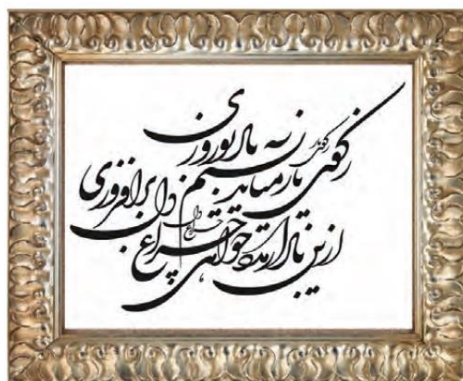 ز کوی یار میاید نسیم باد نوروزی
ازین باد ار مدد خواهی چراغ دل برافروزی